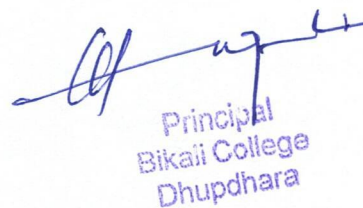 Principal
Bikali College
Dhupdhara